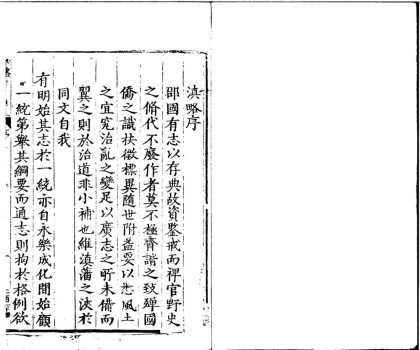 滇略序
郡國有志以存典故資鑒戒而稗官野史
之脩代不廢作者莫不極齊諧之致殫國
僑之識扶微標異隨世附益要以悉風土
之宜究治亂之變足以廣志之所未備而
翼之則於治道非小補也維滇藩之沒於
同文自我
有明始其志於一統亦自永樂成化間始顧
一統第舉其綱要而通志則拘於格例欲